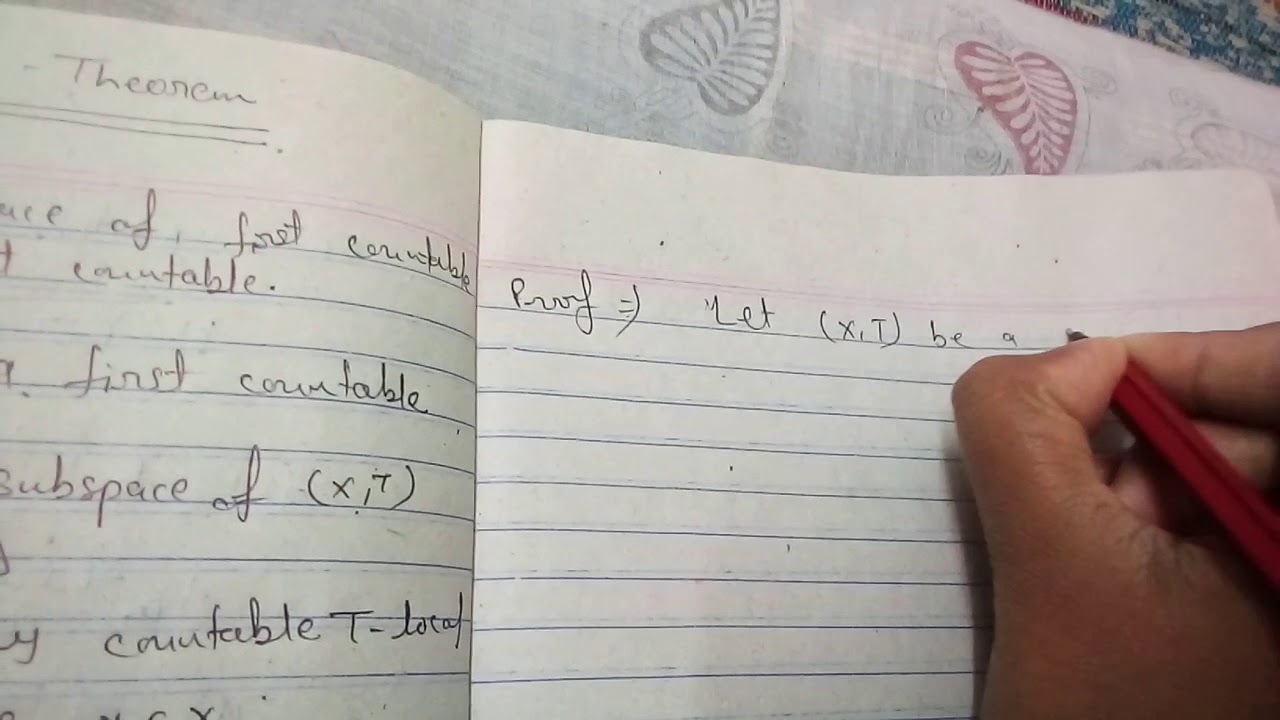 - Theorem
of first countable
countable.
first countable
subspace of (X,T)
countable T-local
Proof => Let (X,T) be a